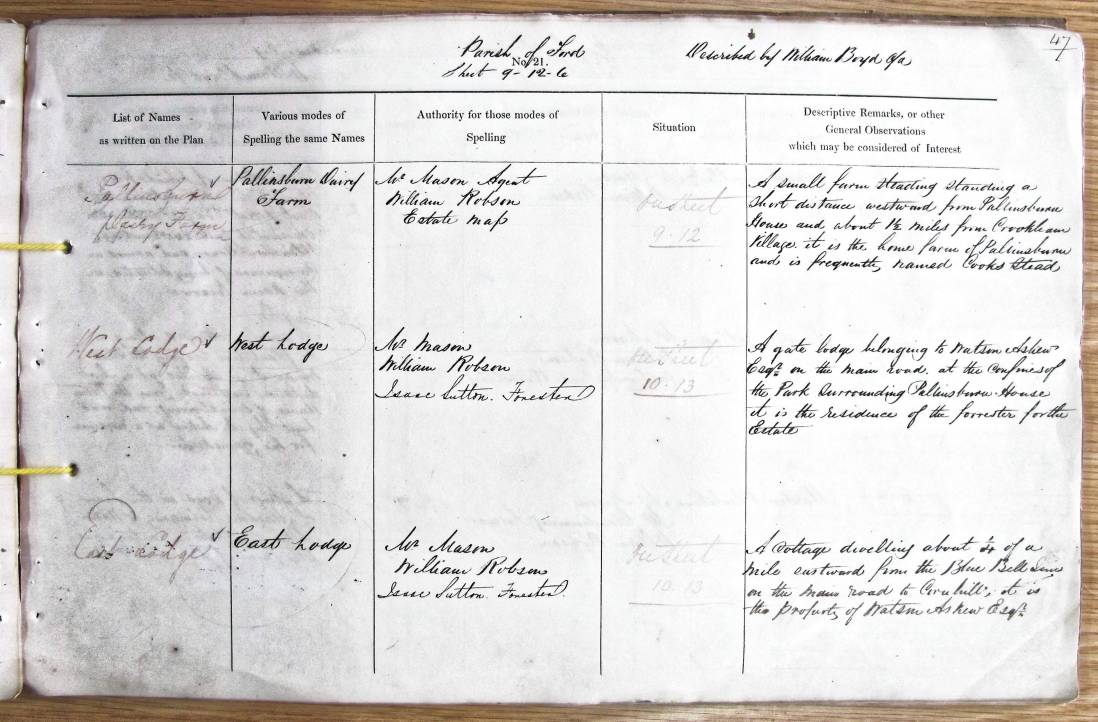 47
Parish of Ford
No. 21.
Sheet 9-12-6
Described by William Boyd
List of Names
as written on the Plan
Various modes of
Spelling the same Names
Authority for those modes of
Spelling
Situation
Descriptive Remarks, or other
General Observations
which may be considered of Interest
Pallinsburn
Dairy Farm
Pallinsburn Dairy
Farm
Mr. Mason Agent
William Robson
Estate Map
9.12
A small farm steading standing a
short distance westward from Pallinsburn
House and about 1½ miles from Crookham
Village. it is the home farm of Pallinsburn
and is frequently named Cooks Stead
West Lodge
West Lodge
Mr. Mason
William Robson
Isaac Sutton. Forester
10.13
A gate lodge belonging to Watson Askew
Esqr. on the main road. at the confines of
the Park Surrounding Pallinsburn House
it is the residence of the forrester for the
Estate
East Lodge
East Lodge
Mr. Mason
William Robson
Isaac Sutton. Forester.
10.13
A Cottage dwelling about ¼ of a
mile eastward from the Blue Bell Inn
on the main road to Cornhill; it is
the Property of Watson Askew Esqr.